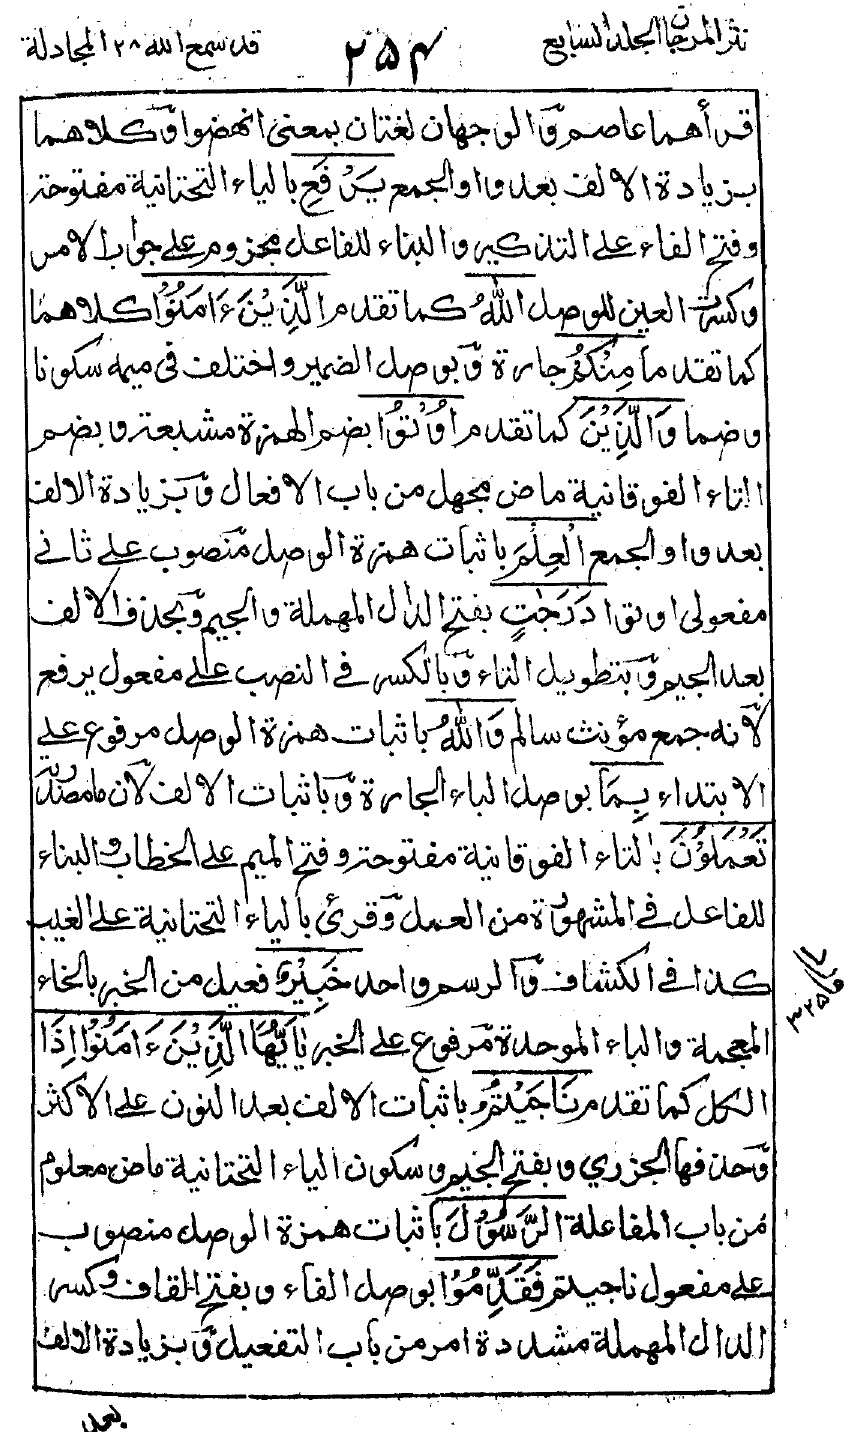 نثر المرجان الجلد السابع
۲۵۴
قد سمع الله ۲۸ المجادلة
قرأهما عاصم وّالوجهان لغتان بمعنى انهضوا وّكلاهما
بزيادة الالف بعد واو الجمع يَرْفَعِ بالياء التحتانية مفتوحة
وفتح الفاء على التذكير والبناء للفاعل مجزوم على جواب الامر
وكسرت العين للوصل اللهُ كما تقدم الَّذِيْنَ ءَامَنُوْا كلاهما
كما تقدما مِنْكُمْ جارة وّبوصل الضمير واختلف فى ميمه سكونا
وضما وَالَّذِيْنَ كما تقدم اُوْتُوا بضم الهمزة مشبعة وبضم
التاء الفوقانية ماض مجهل من باب الافعال وّبزيادة الالف
بعد واو الجمع الْعِلْمَ باثبات همزة الوصل منصوب على ثانى
مفعولى اوتوا دَرَجٰتٍ بفتح الدال المهملة والجيم وّبحذف الالف
بعد الجيم وّبتطويل التاء وّبالكسر فى النصب على مفعول يرفع
لانه جمع مؤنث سالم وَاللهُ باثبات همزة الوصل مرفوع على
الابتداء بِمَا بوصل الباء الجارة وّباثبات الالف لان ما مصدرية
تَعْمَلُوْنَ بالتاء الفوقانية مفتوحة وفتح الميم على الخطاب والبناء
للفاعل فى المشهورة من العمل وّقرئ بالياء التحتانية على الغيب
كذا فى الكشاف وّالرسم واحد خَبِيْرٌ فعيل من الخبر بالخاء
المعجمة والباء الموحدة مرفوع على الخبر يٰاَيُّهَا الَّذِيْنَ ءَامَنُوْا اِذَا
الكل كما تقدم نَاجَيْتُمُ باثبات الالف بعد النون على الاكثر
وّحذفها الجزري وبفتح الجيم وسكون الياء التحتانية ماض معلوم
من باب المفاعلة الرَّسُوْلَ باثبات همزة الوصل منصوب
على مفعول ناجيتم فَقَدِّمُوْا بوصل الفاء وبفتح القاف وكسر
الدال المهملة مشددة امر من باب التفعيل وّبزيادة الالف
بعد